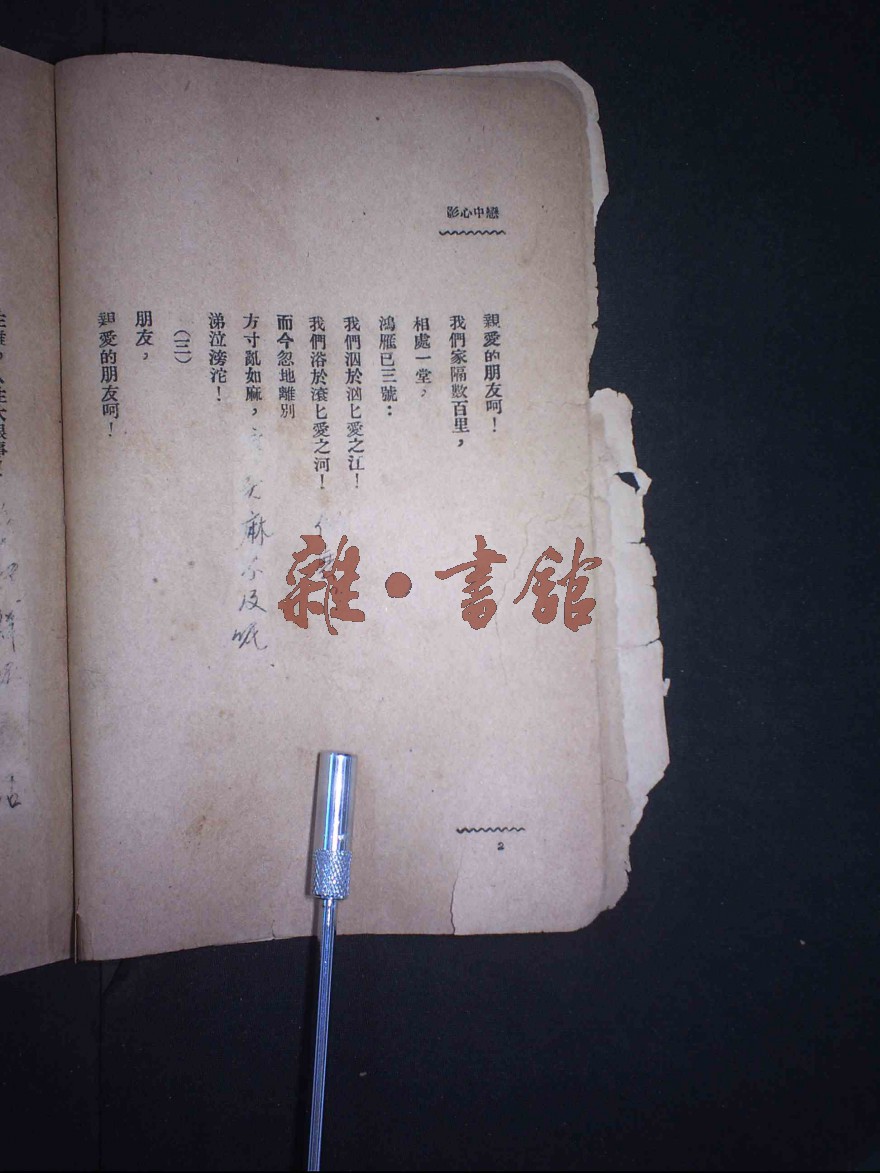 戀中心影
親愛的朋友呵！
我們家隔數百里，
相處一堂，
鴻雁已三號：
我們泅於汹匕愛之江！
我們浴於滾匕愛之河！
而今忽地離別
方寸亂如麻，
麻木及呢
涕泣滂沱！
（三）
朋友，
親愛的朋友呵！
2
雜·書館